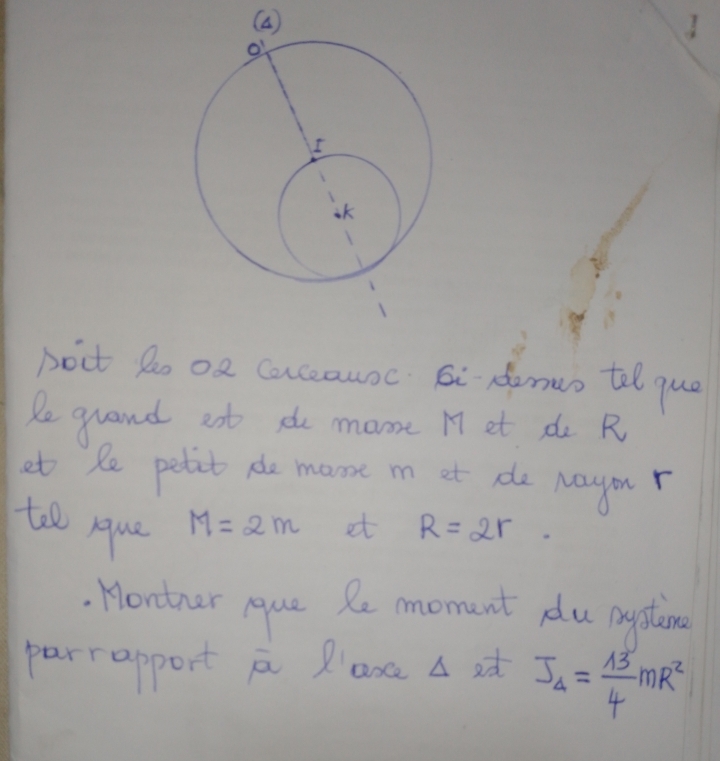 1
(Δ)
O
I
K
soit les 02 cerceaux ci-dessus tel que
le grand est de masse M et de R
et le petit de masse m et de rayon r
tel que M = 2m et R = 2r .
. Montrer que le moment du système
par rapport à l'axe Δ est J_Δ = 13/4 mR²